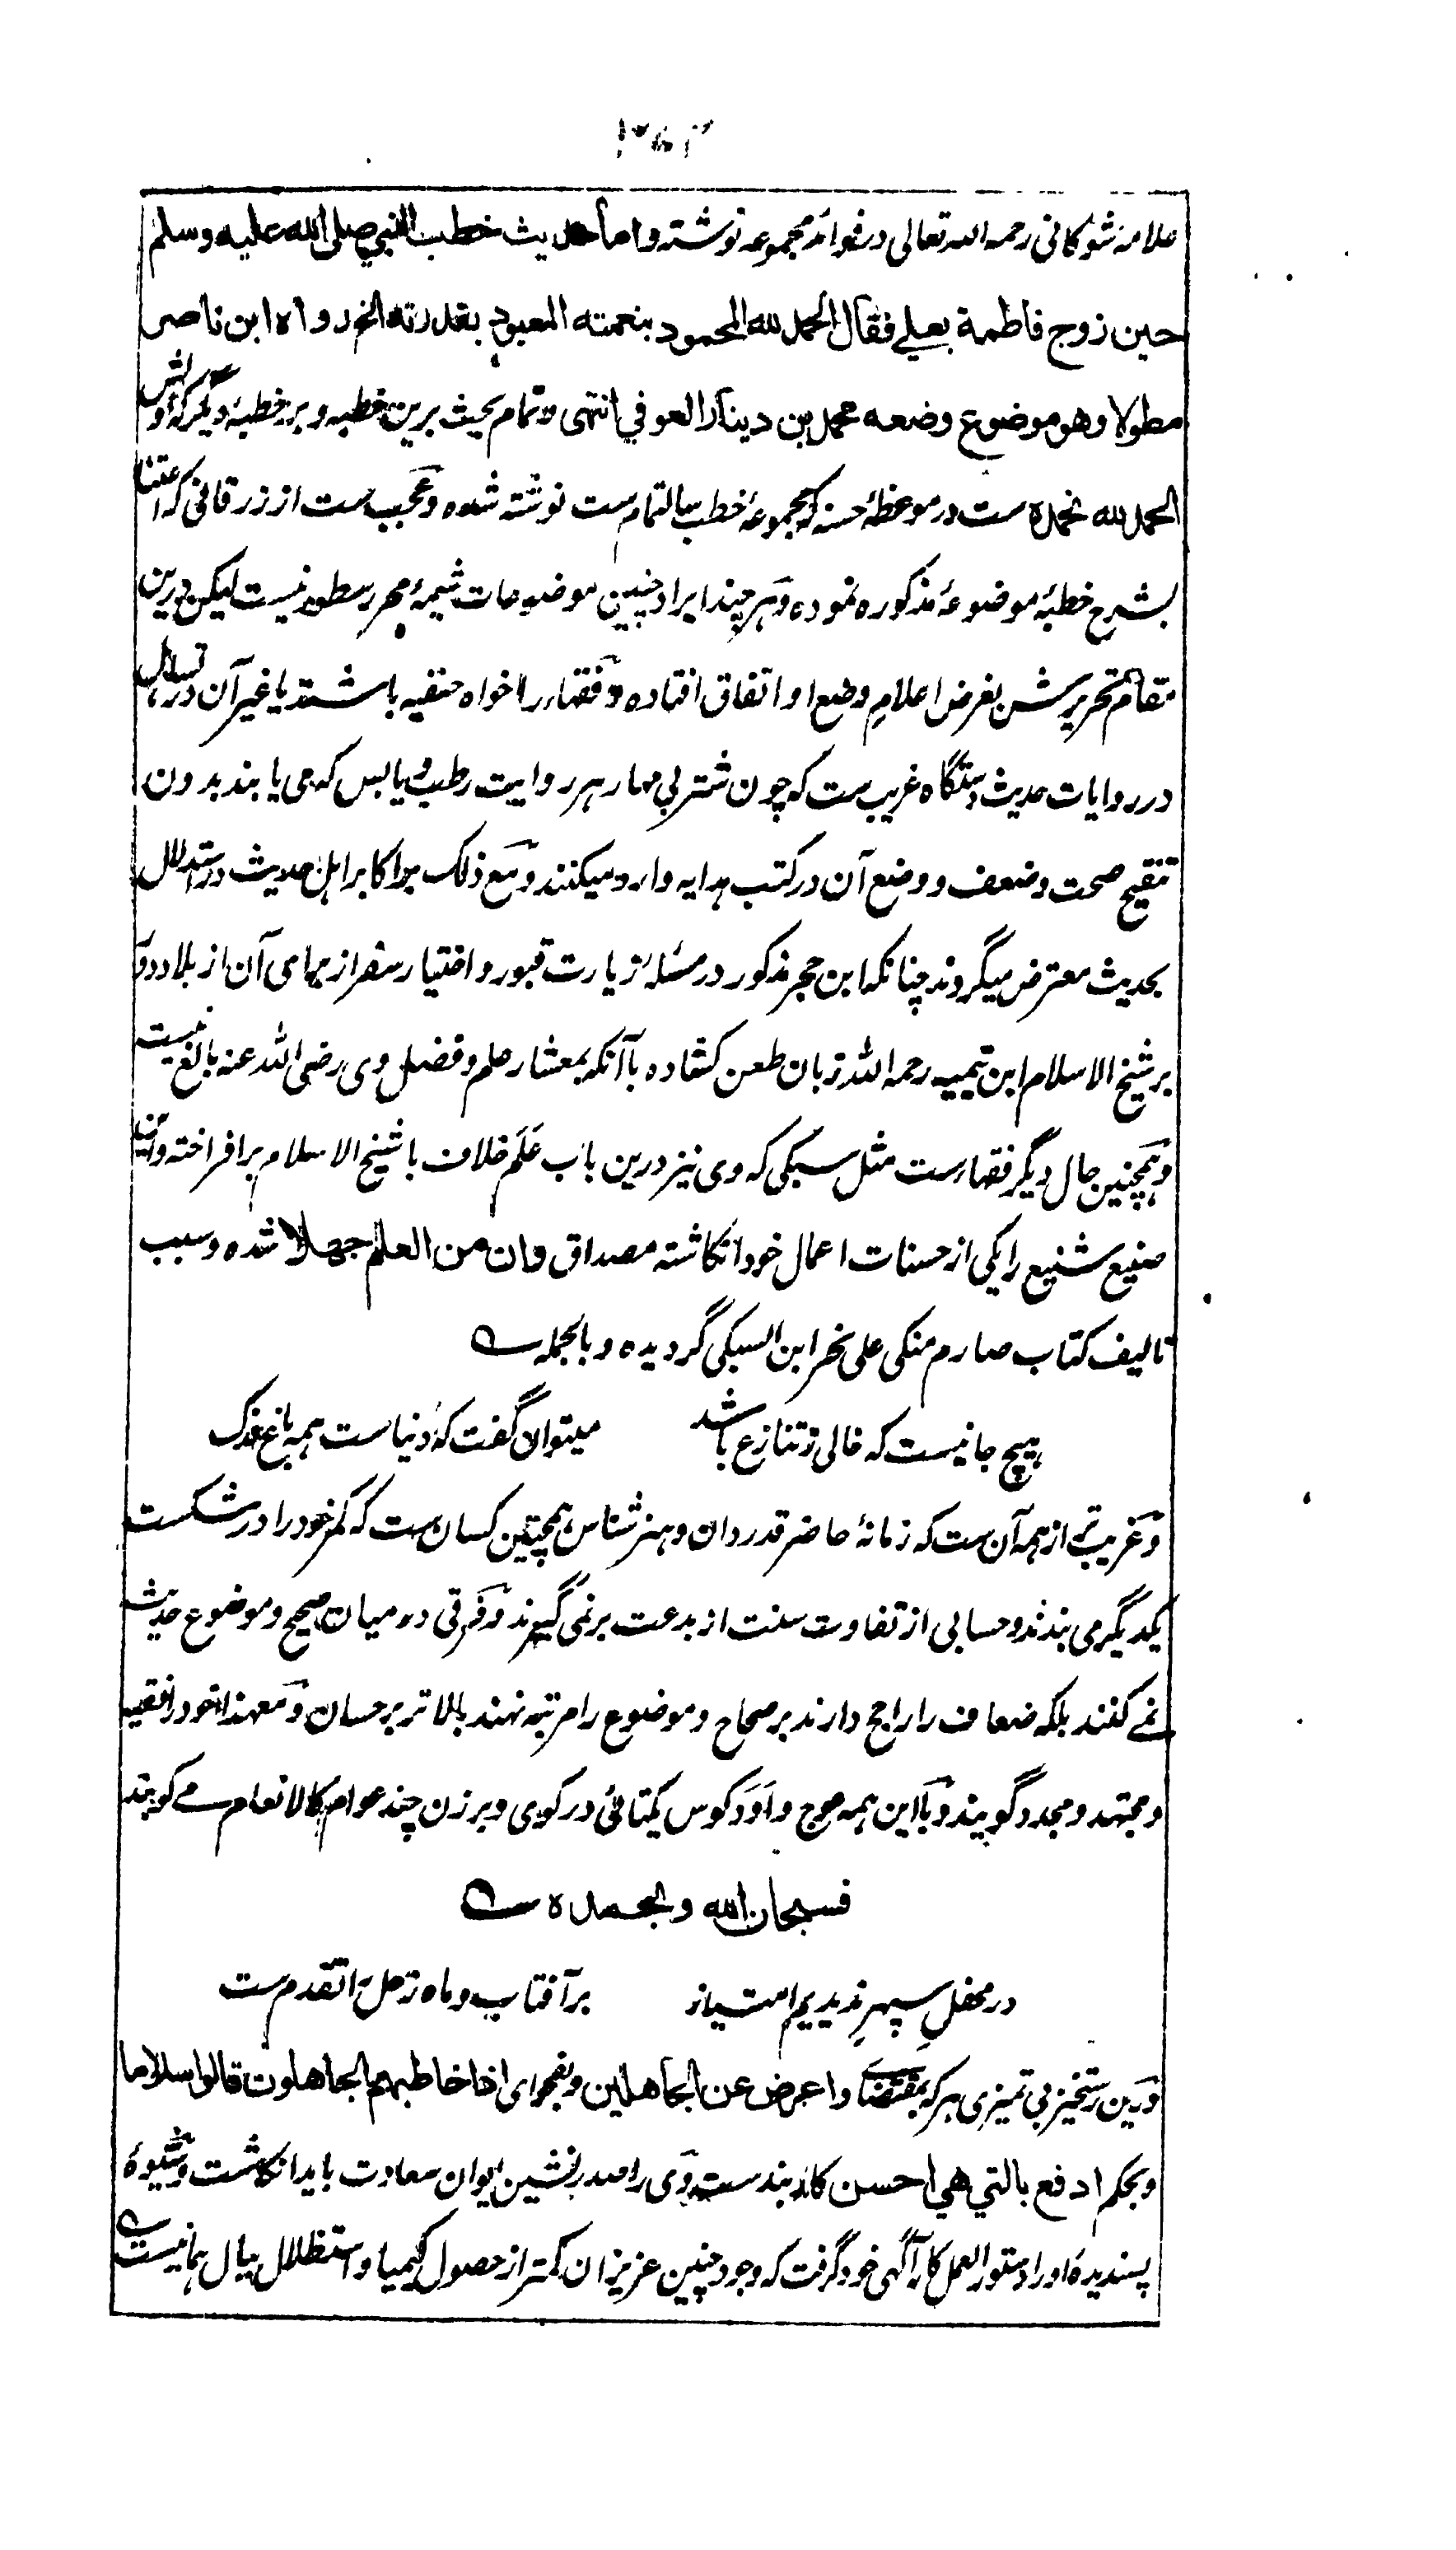 علامه شوکانی رحمه الله تعالی در فوائد مجموعه نوشته واما حدیث خطب النبي صلی الله علیه وسلم
حین زوج فاطمة بعلي فقال الحمد لله المحمود بنعمته المعبود بقدرته الخ رواه ابن ناصر
مطولا وهو موضوع وضعه محمد بن دینار العوفي انتهی و تمام بحث برین خطبه و بر خطبهٔ دیگر که اولش
الحمد لله نحمده ست در موعظهٔ حسنه که مجموعهٔ خطب سالتمام ست نوشته شده و عجب ست از زرقانی که اعتنا
بشرح خطبهٔ موضوعهٔ مذکوره نموده و هر چند ایراد چنین موضوعات شیمهٔ محرر سطور نیست لیکن درین
مقام تحریرش بغرض اعلام وضع او اتفاق افتاده و فقهاء را خواه حنفیه باشند یا غیر آن در تساهل
در روایات حدیث دستگاه غریب ست که چون شتر بی مهار هر روایت رطب و یابس که می یابند بدون
تنقیح صحت و ضعف و وضع آن در کتب هدایه وارد میکنند و مع ذلک بر اکابر اهل حدیث در استدلال
بحدیث معترض میگردند چنانکه ابن حجر مذکور در مسئلهٔ زیارت قبور و اختیار سفر از برای آن از بلاد دور
بر شیخ الاسلام ابن تیمیه رحمه الله زبان طعن کشاده با آنکه بمعشار علم و فضل وی رضی الله عنه بالغ نیست
و همچنین حال دیگر فقهارست مثل سبکی که وی نیز درین باب علم خلاف با شیخ الاسلام بر افراخته و این
صنیع شنیع را یکی از حسنات اعمال خود انگاشته مصداق وان من العلم جهلا شده و سبب
تالیف کتاب صارم منکی علی نحر ابن السبکی گردیده و بالجمله
هیچ جا نیست که خالی ز تنازع باشد میتوان گفت که دنیاست همه باغ فدک
و غریب تر از همه آن ست که زمانهٔ حاضر قدردان و هنر شناس همچنین کسان ست که کمر خود را در شکست
یکدیگر می بندند و حسابی از تفاوت سنت از بدعت بر نمی گیرند و فرقی در میان صحیح و موضوع حدیث
نمے کنند بلکه ضعاف را راجح دارند بر صحاح و موضوع را مرتبه نهند بالاتر بر حسان و معهذا خود را فقیه
و مجتهد و مجدد گویند و با این همه عوج و اود کوس یکتائی در کوی و برزن چند عوام کالانعام مے کوبند
فسبحان الله وبحمده
در محفل سپهر ندیدیم امتیاز بر آفتاب و ماه زحل را تقدم ست
و درین رستخیز بی تمیزی هر که بمقتضای واعرض عن الجاهلین و بفحوای اذا خاطبهم الجاهلون قالوا سلاما
و بحکم ادفع بالتي هي احسن کاربند ست وی را صدر نشین ایوان سعادت باید انگاشت و شیوهٔ
پسندیدهٔ او را دستور العمل کار آگهی خود گرفت که وجود چنین عزیزان کمتر از حصول کیمیا و استظلال ببال هما نیست